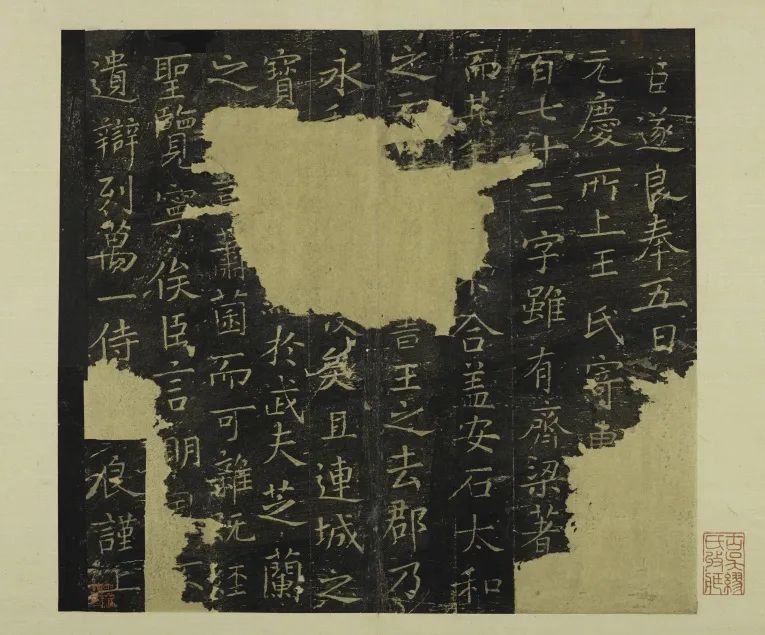 臣遂良奉五日
元慶所上王氏寄
百七十三字雖有齊梁著
而其 合蓋安石太和
之 言王之去郡乃
永 矣且連城之
寶 於武夫芝蘭
之 蕭茵而可雜既經
聖覽寧俟臣言明
遺辯列萬一侍 浪謹上